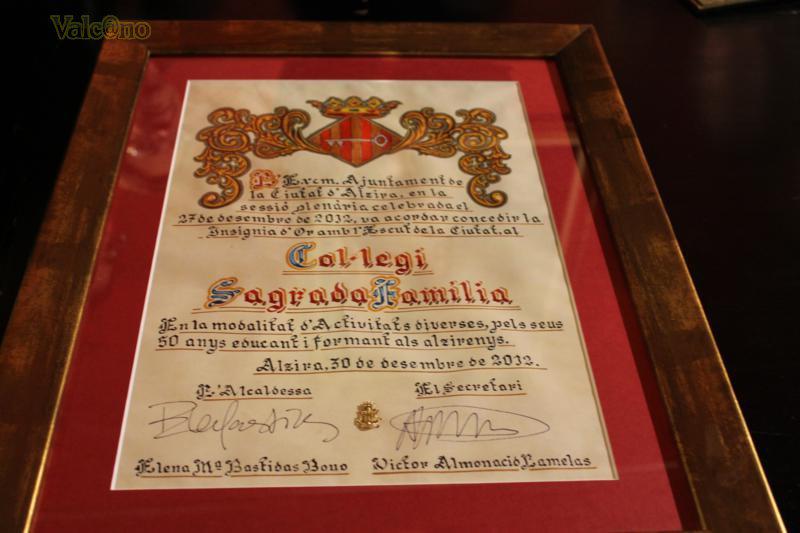 Valc@no
L'Excm. Ajuntament de
la Ciutat d'Alzira, en la
sessió plenària celebrada el
27 de desembre de 2012, va acordar concedir la
Insignia d'Or amb l'Escut de la Ciutat, al
Col·legi
Sagrada Familia
En la modalitat d'Activitats diverses, pels seus
50 anys educant i formant als alzirenys.
Alzira, 30 de desembre de 2012.
L'Alcaldessa El Secretari
Elena Mª Bastidas Bono Victor Almonacid Lamelas